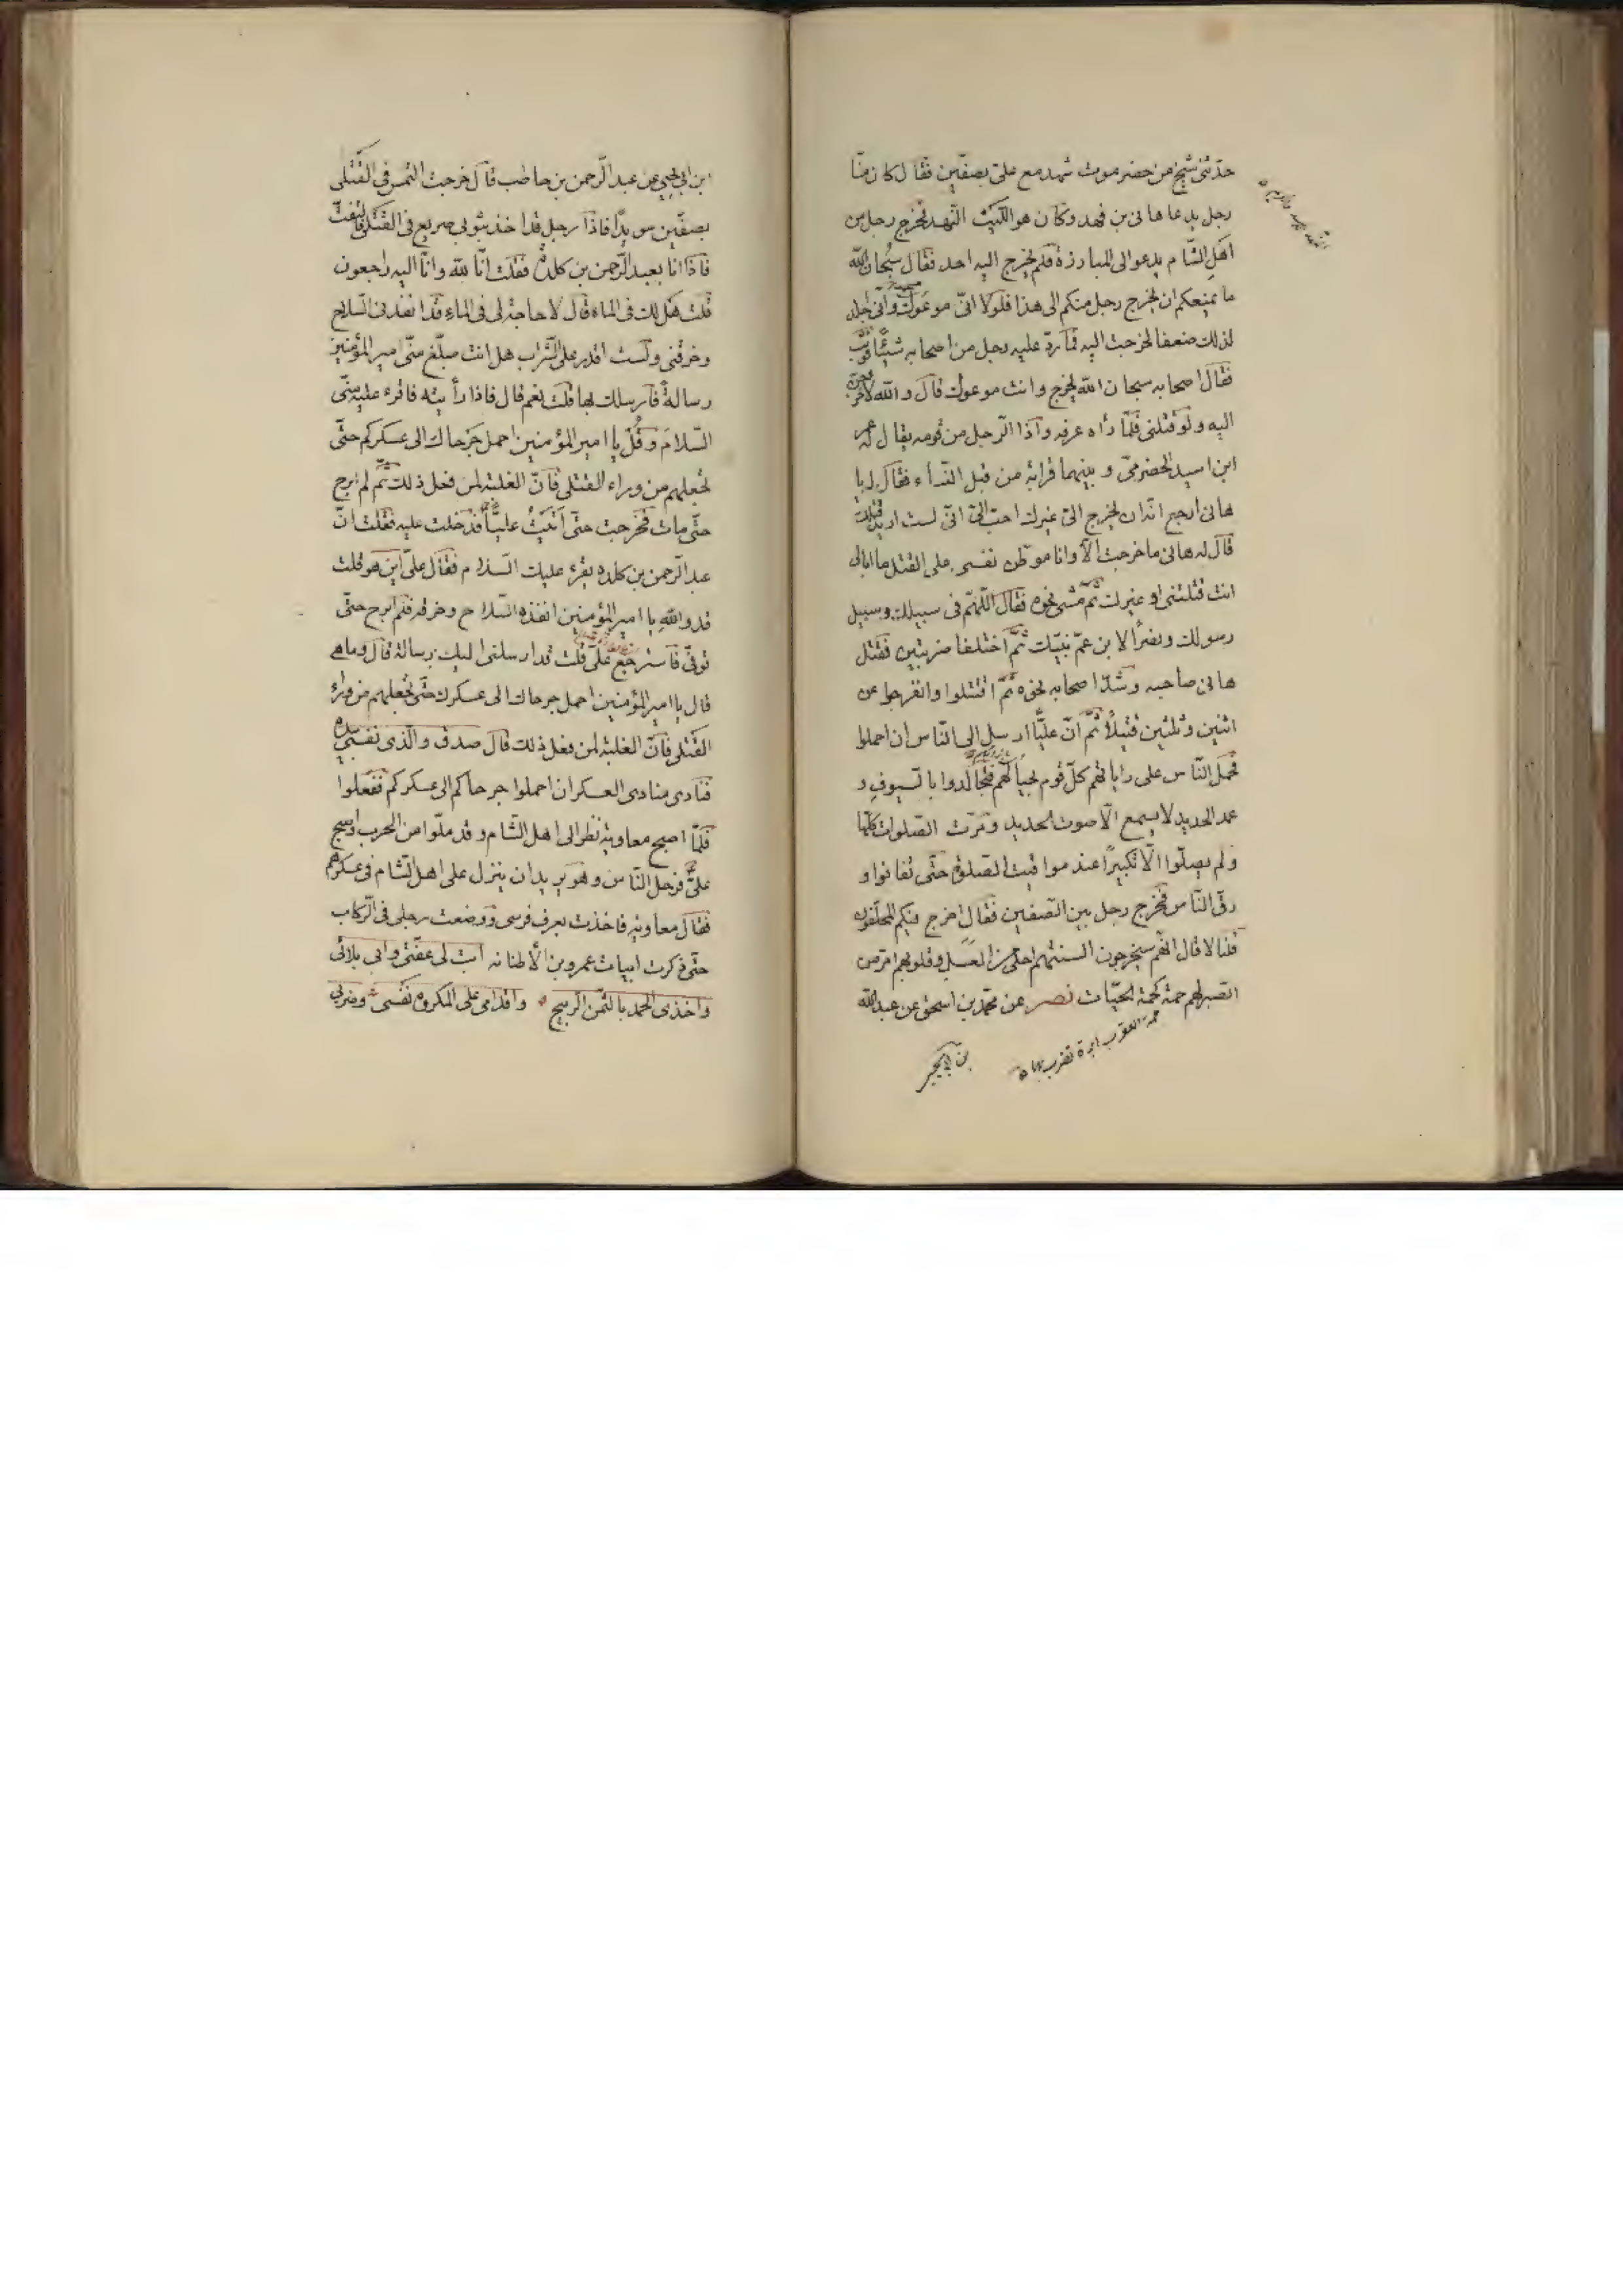 حدّثنى شيخ من حضرموت شهد مع علىّ بصفّين فقال كان منّا
رجل يدعا هانى بن فهد وكان هو اللّيث النّهد فخرج رجل من
اهل الشّام يدعو الى المبارزة فلم يخرج اليه احد فقال سبحان الله
ما يمنعكم ان يخرج رجل منكم الى هذا فلولا انّى موعوك وانّى اجد
لذلك ضعفا لخرجت اليه فما ردّ عليه رجل من اصحابه شيئًا فوثب
فقال اصحابه سبحان الله تخرج وانت موعوك قال والله لاخرجنّ
اليه ولو قتلنى فلمّا رأه عرفه واذا الرّجل من قومه يقال له يعمر
ابن اسيد الحضرمىّ وبينهما قرابة من قبل النّساء فقال له يا
هانى ارجع انّه ان يخرج الىّ غيرك احبّ الىّ انّى لست اريد قتلك
قال له هانى ما خرجت الّا وانا موطّن نفسى على القتل ما ابالى
انت قتلتنى او غيرك ثمّ مشى نحوه فقال اللّهمّ فى سبيلك وسبيل
رسولك ونصرًا لابن عمّ نبيّك ثمّ اختلفا ضربتين فقتل
هانى صاحبه وشدّ اصحابه نحوه ثمّ اقتتلوا وانفرجوا عن
اثنين وثلثين قتيلًا ثمّ انّ عليًّا ارسل الى النّاس ان احملوا
فحمل النّاس على راياتهم كلّ قوم بحيالهم فتجالدوا بالسّيوف و
عمد الحديد لا يسمع الّا صوت الحديد ومرّت الصّلوات كلّها
ولم يصلّوا الّا تكبيرًا عند مواقيت الصلوة حتّى تفانوا و
رقّ النّاس فخرج رجل بين الصّفين فقال اخرج فيكم المحلّقون
قلنا لا قال انّهم سيخرجون السنتهم احلى من العسل وقلوبهم امرّ من
الصبر لهم حمة كحمة الحيّات نصر عن محمّد بن اسحق عن عبد الله
حمة العقرب ابرة تضرب بها
بن ابى يحيى
ابن ابى يحيى عن عبد الرّحمن بن حاطب قال خرجت التمس فى القتلى
بصفّين سويدًا فاذا رجل قد اخذ بثوبى صريع فى القتلى فالتفتّ
فاذا انا بعبد الرّحمن بن كلدة فقلت انّا لله وانّا اليه راجعون
قلت هل لك فى الماء قال لا حاجة لى فى الماء قد انفذ فى السّلاح
وخرقنى ولست اقدر على الشّراب هل انت مبلّغ عنّى امير المؤمنين
رسالةً فارسلك بها قلت نعم قال فاذا رأيته فاقرء عليه منّى
السّلام وقُل يا امير المؤمنين احمل جرحاك الى عسكرك حتّى
تجعلهم من وراء القتلى فانّ الغلبة لمن فعل ذلك ثمّ لم ابرح
حتّى مات فخرجت حتّى أتيتُ عليًّا فدخلت عليه فقلت انّ
عبد الرّحمن بن كلدة يقرء عليك السّلام فقال علىّ اين هو قلت
قد والله يا امير المؤمنين انفذه السّلاح وخرقه فلم ابرح حتّى
توفّى فاسترجع علىّ قلت قد ارسلنى اليك برسالة قال وما هى
قال يا امير المؤمنين احمل جرحاك الى عسكرك حتّى تجعلهم من وراء
القتلى فانّ الغلبة لمن فعل ذلك قال صدق والّذى نفسى بيده
فنادى منادى العسكر ان احملوا جرحاكم الى عسكركم ففعلوا
فلمّا اصبح معاوية نظر الى اهل الشّام وقد ملّوا من الحرب واصبح
علىٌّ فرحل النّاس وهو يريد ان ينزل على اهل الشّام فى عسكرهم
فقال معاوية فاخذت بعرف فرسى ووضعت رجلى فى الرّكاب
حتّى ذكرت ابيات عمرو بن الاطنابة ابت لى عفّتى وابى بلائى
واخذى الحمد بالثّمن الرّبيح واقدامى على المكروه نفسى وضربى